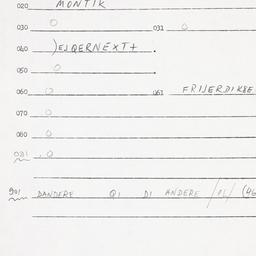 020 MONTIK
030 O 031 O
040 )EJQERNEXT+ .
050 O .
060 O 061 FRIJERDIKBE
070 O
080 O
081 . O
901 DANDERE QI DI ANDERE /01/ (46